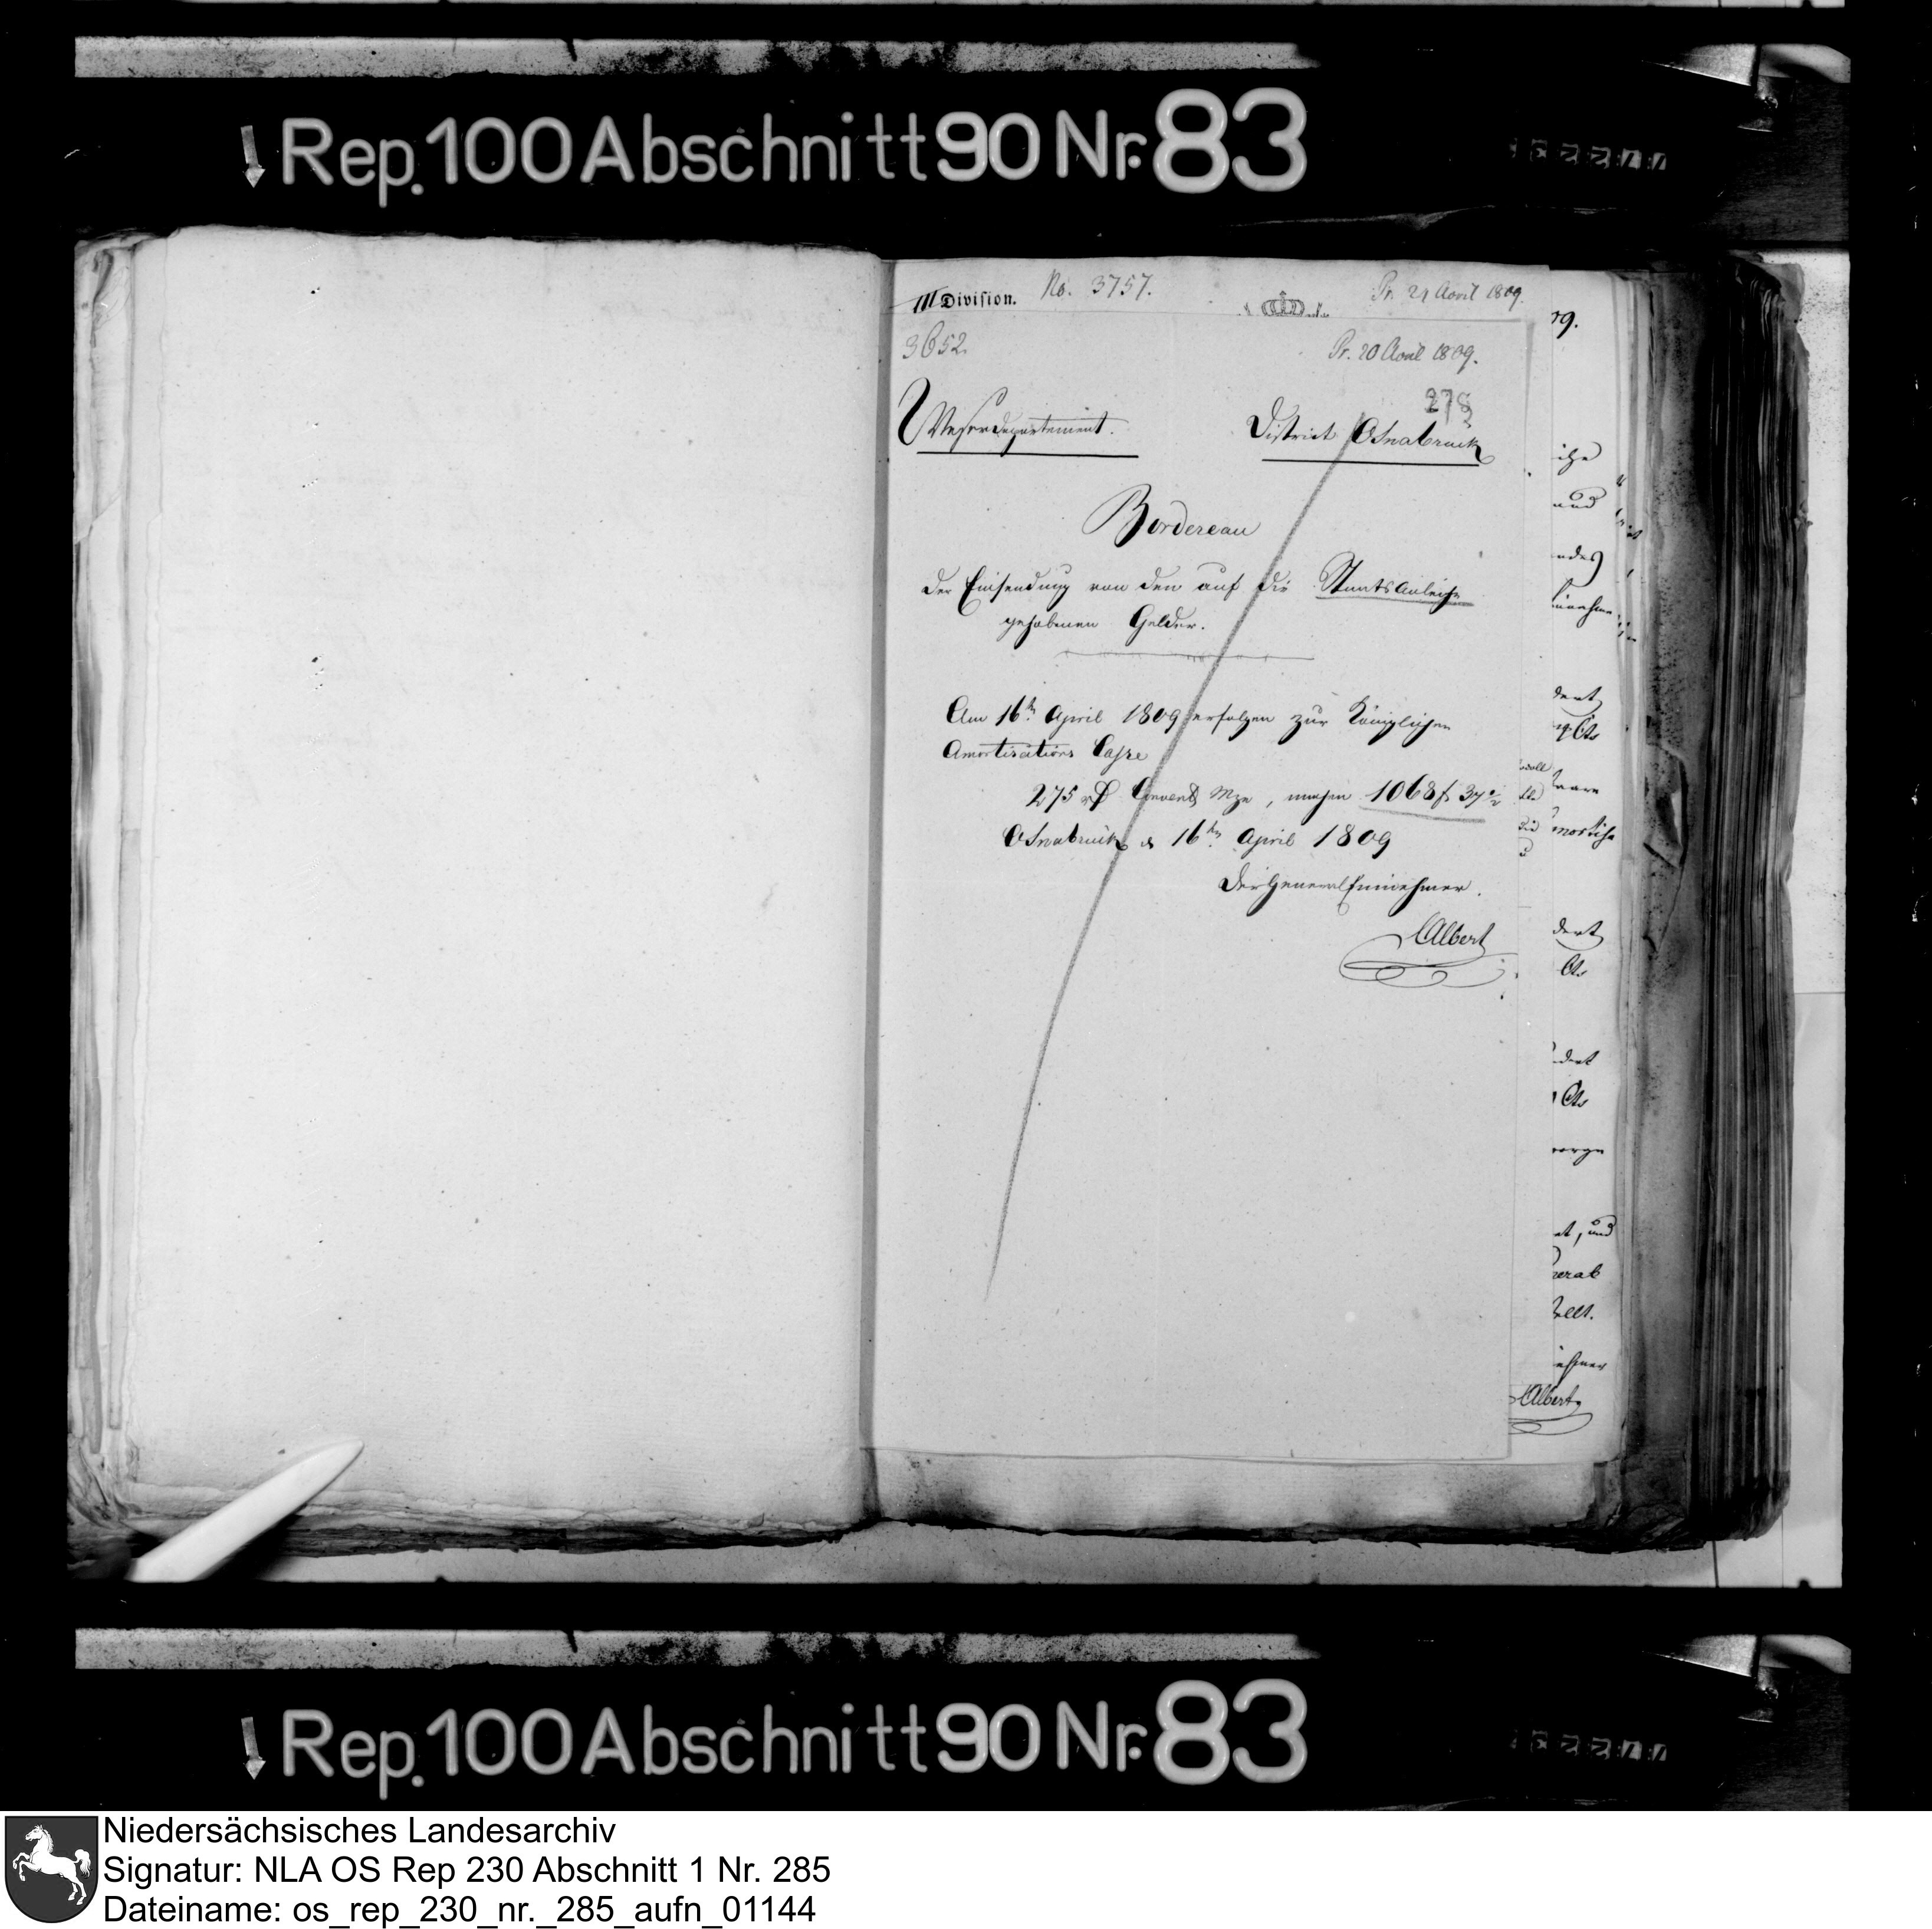 Rep. 100 Abschnitt 90 Nr. 83
III Division.
No. 3757.
Pr. 21 April 1809.
3652.
Pr. 20 April 1809.
278
Weserdepartement.
District Osnabrück
Bordereau
der Einsendung von den auf die Staatsanleihe
gehobenen Gelder.
Am 16ten April 1809 erfolgen zur Königlichen
Amortisations Casse
275 rℓ Convent Mze, machen 1068 fr 37
Osnabrück d 16ten April 1809
Der General Einnehmer.
Albert
09.
und
dert
Cts
dert
Cts
dert
Cts
at, und
neral
Albert
Rep. 100 Abschnitt 90 Nr. 83
Niedersächsisches Landesarchiv
Signatur: NLA OS Rep 230 Abschnitt 1 Nr. 285
Dateiname: os_rep_230_nr._285_aufn_01144